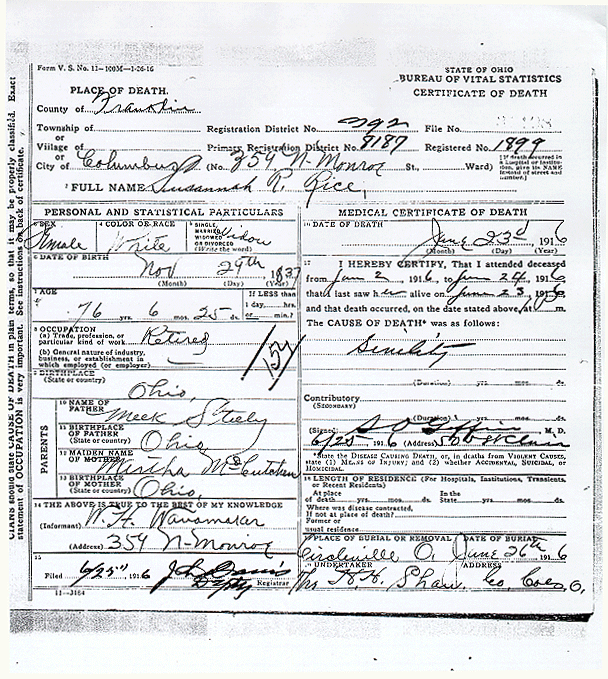 Form V. S. No. 11—100M—1-26-16
STATE OF OHIO
BUREAU OF VITAL STATISTICS
CERTIFICATE OF DEATH
PLACE OF DEATH.
County of Franklin
Township of
Registration District No. 392
File No.
or
Village of
Primary Registration District No. 8187
Registered No. 1899
or
City of Columbus
(No. 354 N. Monroe St., Ward)
[If death occurred in a Hospital or Institution, give its NAME instead of street and number.]
FULL NAME Susannah R. Rice,
PERSONAL AND STATISTICAL PARTICULARS
MEDICAL CERTIFICATE OF DEATH
3 SEX
Female
4 COLOR OR RACE
White
5 SINGLE, MARRIED, WIDOWED OR DIVORCED (Write the word)
Widow
6 DATE OF BIRTH
Nov 29th 1837
(Month) (Day) (Year)
7 AGE
76 yrs. 6 mos. 25 ds.
If LESS than 1 day, hrs. or min.?
8 OCCUPATION
(a) Trade, profession, or particular kind of work Retired
(b) General nature of industry, business, or establishment in which employed (or employer)
9 BIRTHPLACE
(State or country) Ohio,
PARENTS
10 NAME OF FATHER Meek Steely
11 BIRTHPLACE OF FATHER (State or country) Ohio
12 MAIDEN NAME OF MOTHER
13 BIRTHPLACE OF MOTHER (State or country) Ohio,
14 THE ABOVE IS TRUE TO THE BEST OF MY KNOWLEDGE
(Informant)
(Address) 354 N-Monroe
15
Filed 6/25" 1916
Registrar
11—3164
16 DATE OF DEATH
June 23d 1916
(Month) (Day) (Year)
17 I HEREBY CERTIFY, That I attended deceased
from June 2, 1916, to June 24, 1916
that I last saw her alive on June 23, 1916
and that death occurred, on the date stated above, at m.
The CAUSE OF DEATH* was as follows:
Senility
(Duration) yrs. mos. ds.
Contributory
(SECONDARY)
(Duration) yrs. mos. ds.
(Signed) M. D.
6/25, 1916 (Address)
*State the DISEASE CAUSING DEATH, or, in deaths from VIOLENT CAUSES, state (1) MEANS OF INJURY; and (2) whether ACCIDENTAL, SUICIDAL, or HOMICIDAL.
18 LENGTH OF RESIDENCE (For Hospitals, Institutions, Transients, or Recent Residents)
At place of death yrs. mos. ds.
In the State yrs. mos. ds.
Where was disease contracted, If not at place of death?
Former or usual residence
19 PLACE OF BURIAL OR REMOVAL
Circleville O.
DATE OF BURIAL
June 26th 1916
20 UNDERTAKER
ADDRESS
Shaw
CIANS should state CAUSE OF DEATH in plain terms, so that it may be properly classified. Exact
statement of OCCUPATION is very important. See instructions on back of certificate.